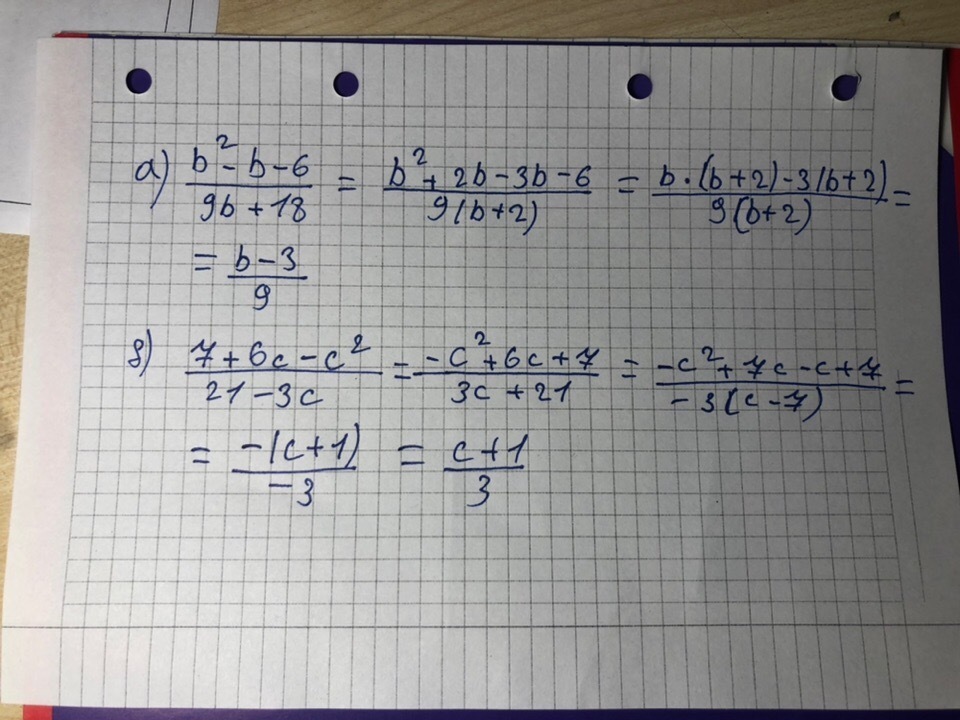 а) (b² - b - 6)/(9b + 18) = (b² + 2b - 3b - 6)/(9(b + 2)) = (b · (b + 2) - 3(b + 2))/(9(b + 2)) =
= (b - 3)/9
б) (7 + 6c - c²)/(21 - 3c) = (-c² + 6c + 7)/(3c + 21) = (-c² + 7c - c + 7)/(-3(c - 7)) =
= (-(c + 1))/(-3) = (c + 1)/3